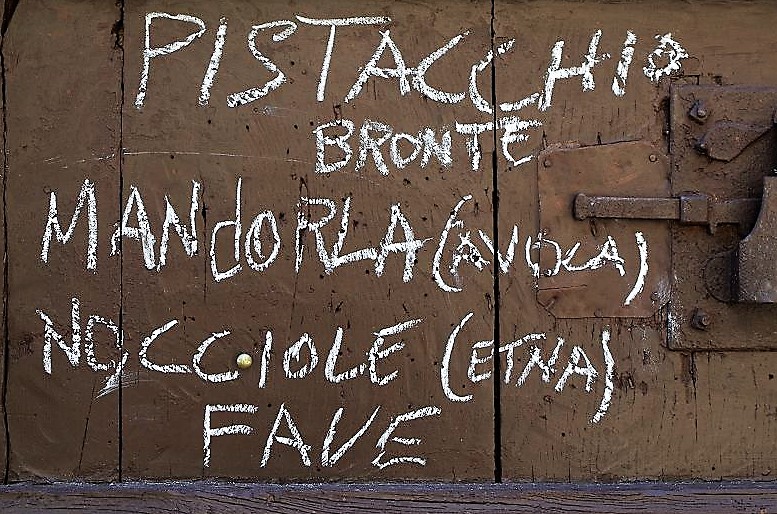 PISTACCHIO
BRONTE
MANdORLA (AVOLA)
NOCCIOLE (ETNA)
FAVE